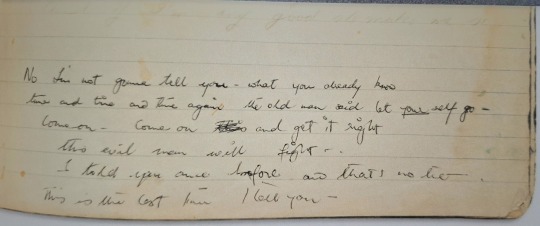 No I'm not gonna tell you - what you already know
time and time and time again the old man said let your self go -
Come on - Come on and get it right
this evil man will fight -.
I told you once before and that's no lie.
This is the last time I tell you -